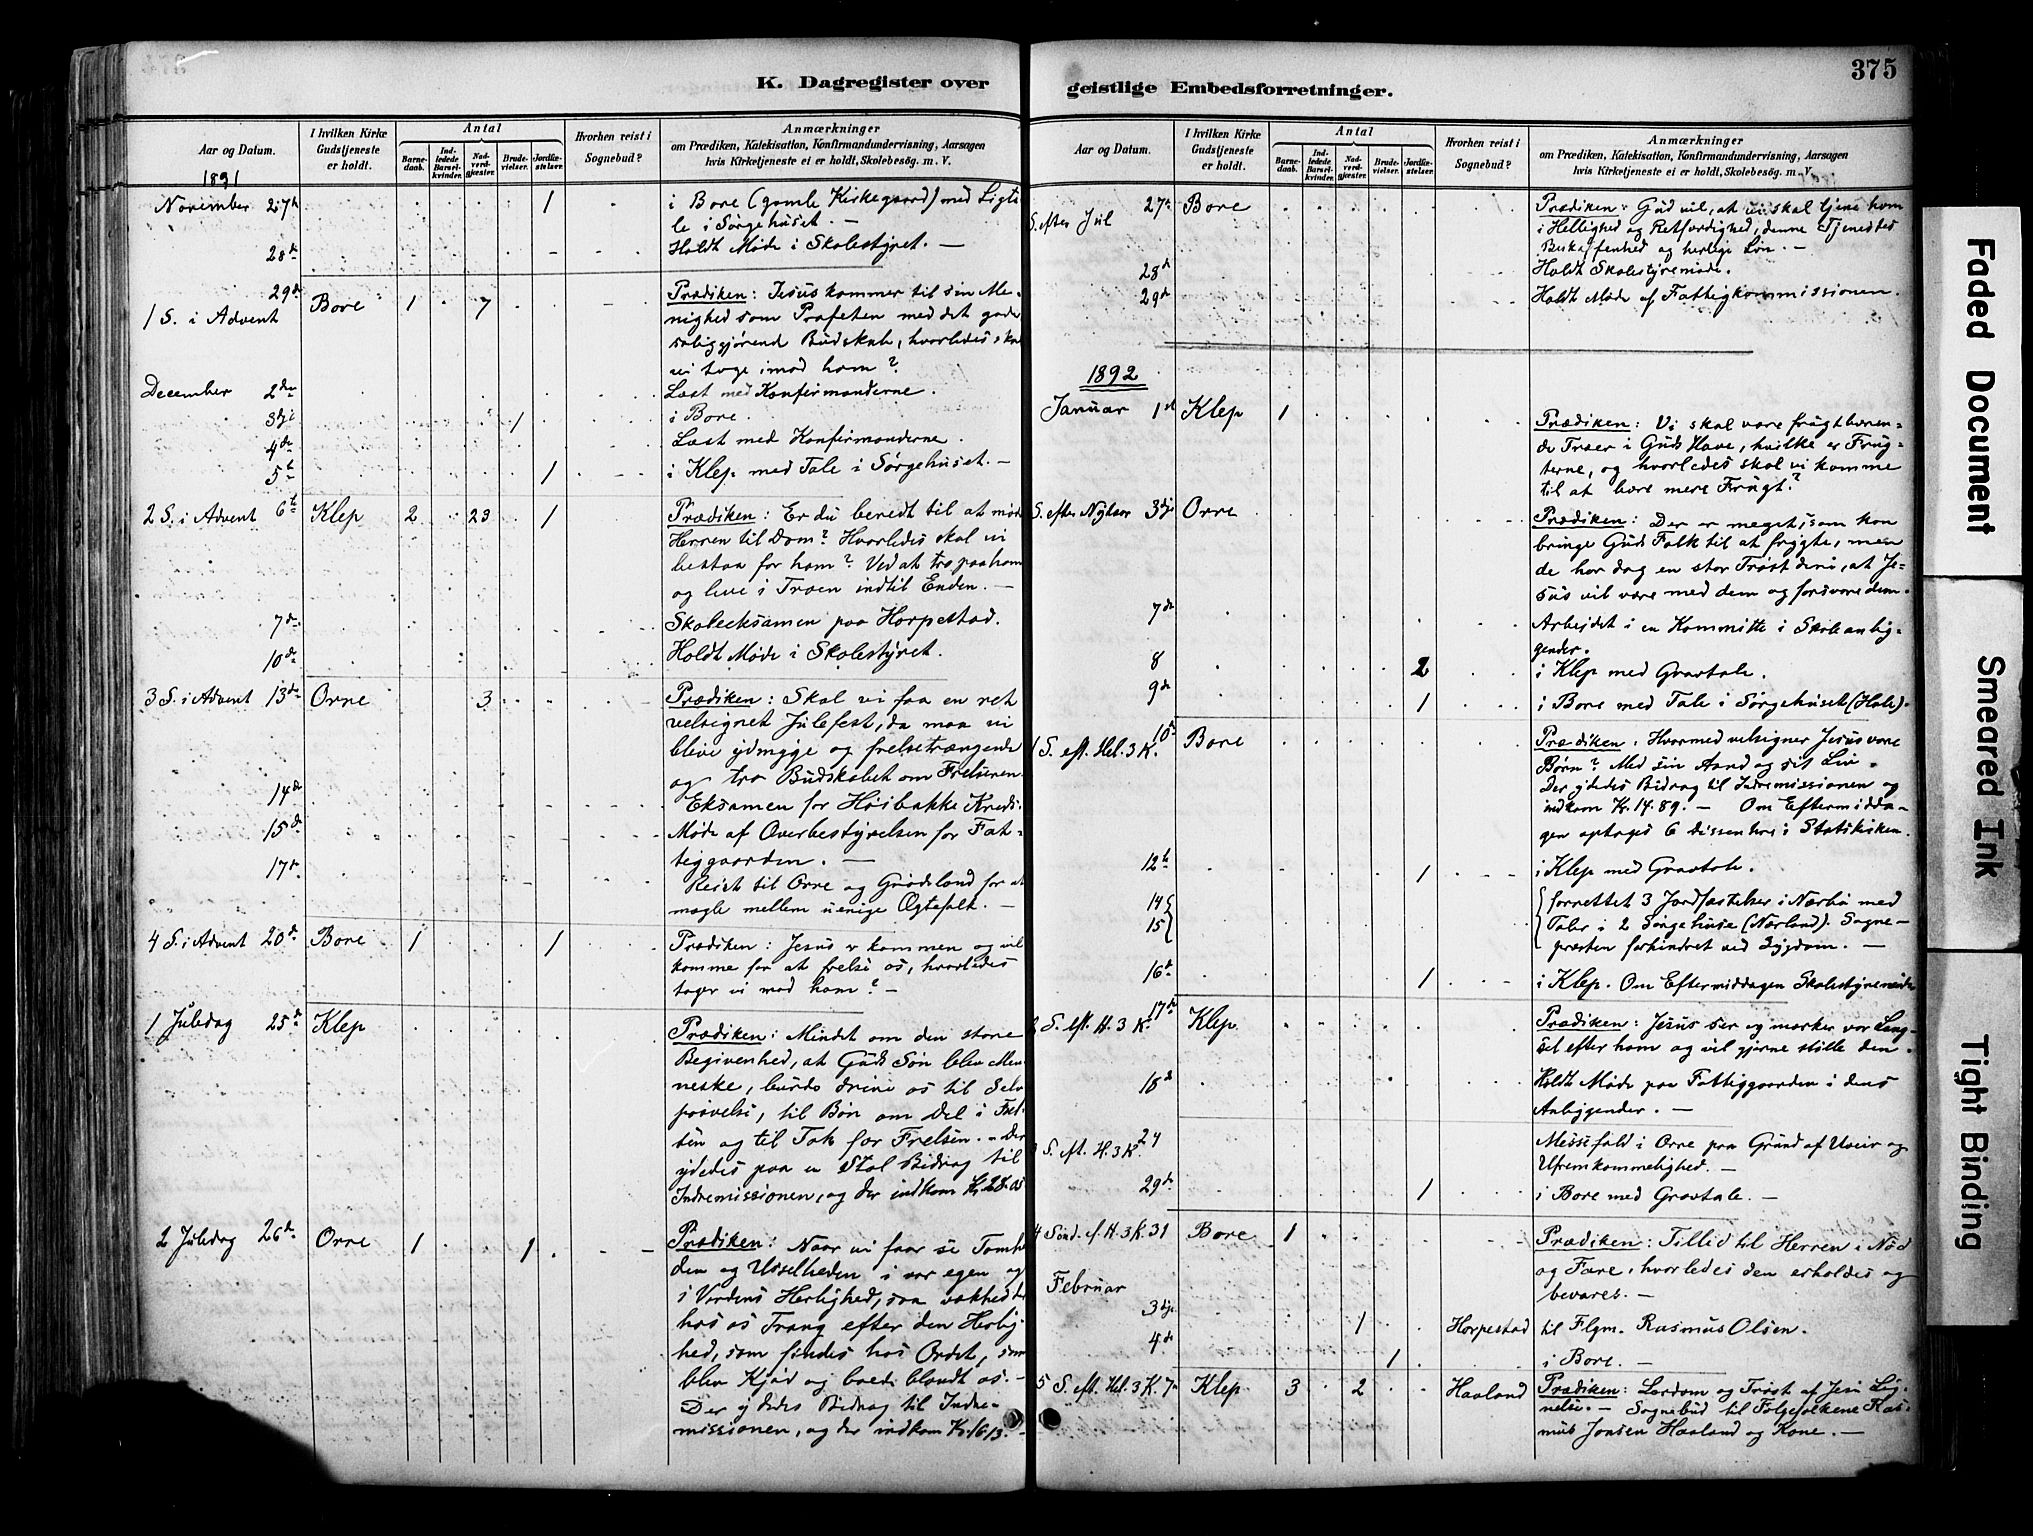 K. Dagregister over
Aar og Datum.
I hvilken Kirke Gudstjeneste er holdt.
Antal
Barne-daab.
Ind-ledede Barsel-kvinder.
Nad-verd-gjæster.
Brude-vielser.
Jordfæ-stelser.
Hvorhen reist i Sognebud?
Anmærkninger
om Prædiken, Katekisation, Konfirmandundervisning, Aarsagen
hvis Kirketjeneste ei er holdt, Skolebesøg. m. V.
1891
November 27de 1 i Bore (gamle Kirkegaard) med Ligta
le i Sørgehuset. —
28de Holdt Møde i Skolestyret. —
29de
1 S. i Advent Bore 1 7 Prædiken: Jesus kommer til sin Me-
nighed som Profeten med det gode
saliggjørende Budskab, hvorledes skal
vi tage imod ham?
December 2den Læst med Konfirmanderne.
3dje 1 i Bore.
4de Læst med Konfirmanderne.
5te 1 i Klep med Tale i Sørgehuset. —
2 S. i Advent 6te Klep 2 23 1 Prædiken: Er du beredt til at møde
Herren til Dom? Hvorledes skal vi
bestaa for ham? Ved at tro paa ham
og leve i Troen indtil Enden. —
7de Skoleeksamen paa Horpestad.
10de Holdt Møde i Skolestyret.
3 S. i Advent 13de Orre 3 Prædiken: Skal vi faa en ret
velsignet Julefest, da maa vi
blive ydmyge og frelsetrængende
og tro Budskabet om Frelseren.
14de Eksamen for Hoibakke Kreds.
15de Møde af Overbestyrelsen for Fat-
tiggaarden. —
17de Reist til Orre og Grødeland for at
mægle mellem uenige Ægtefolk. —
4 S. i Advent 20de Bore 1 1 Prædiken: Jesus er kommen og vil
komme for at frelse os, hvorledes
tager vi mod ham? —
1 Juledag 25de Klep Prædiken: Mindet om den store
Begivenhed, at Guds Søn blev Men
neske, burde drive os til Selv
prøvelse, til Bøn om Del i Frel-
sen og til Tak for Frelsen. - Der
ydedes paa en Stol Bidrag til
Indremissionen, og der indkom Kr. 28.05
2 Juledag 26de Orre 1 1 Prædiken: Naar vi faar se Tomhe
den og Usselheden i vor egen og
i Verdens Herlighed, saa vækkes der
hos os Trang efter den Herlig-
hed, som findes hos Ordet, som
blev Kjød og boede blandt os. —
Der ydedes Bidrag til Indre-
missionen, og der indkom Kr. 16.13. —
geistlige Embedsforretninger.
375
Aar og Datum.
I hvilken Kirke Gudstjeneste er holdt.
Antal
Barne-daab.
Ind-ledede Barsel-kvinder.
Nad-verd-gjæster.
Brude-vielser.
Jordfæ-stelser.
Hvorhen reist i Sognebud?
Anmærkninger
om Prædiken, Katekisation, Konfirmandundervisning, Aarsagen
hvis Kirketjeneste ei er holdt, Skolebesøg. m. V.
S. efter Jul 27de Bore Prædiken: Gud vil, at vi skal tjene ham
i Hellighed og Retfærdighed, denne Tjenestes
Beskaffenhed og herlige Løn. —
28de Holdt Skolestyremøde.
29de Holdt Møde af Fattigkommissionen.
1892
Januar 1ste Klep 1 Prædiken: Vi skal være frugtbæren-
de Træer i Guds Have, hvilke er Frug-
terne, og hvorledes skal vi komme
til at bære mere Frugt?
S. efter Nytaar 3dje Orre Prædiken: Der er meget, som kan
bringe Guds Folk til at frygte, men
de har dog en stor Trøst deri, at Je-
sus vil være med dem og forsvare dem.
7de Arbejdet i en Kommitte i Skoleanlig-
gender.
8 2 i Klep med Gravtale.
9de 1 i Bore med Tale i Sørgehuset (Hole).
1 S. eft. Hel. 3 K. 10de Bore Prædiken: Hvormed velsigner Jesus vore
Børn? Med sin Aand og sit Liv.
Der ydedes Bidrag til Indremissionen og
indkom Kr. 14.89. — Om Eftermidda-
gen optoges 6 dissentere i Statskirken.
12te 1 i Klep med Gravtale.
14 forrettet 3 Jordfæstelser i Nærbø med
15 Taler i 2 Sørgehuse (Nærland). Sogne-
præsten forhindret ved Sygdom. —
16de 1 i Klep. Om Eftermiddagen Skolestyremøde
2 S. eft. H. 3 K. 17de Klep Prædiken: Jesus ser og mærker vor Læng-
sel efter ham og vil gjerne stille den.
18de Holdt Møde paa Fattiggaarden i dens
Anliggender. —
3 S. eft. H. 3 K. 24 Messefald i Orre paa Grund af Uveir og
Ufremkommelighed. —
29de 1 i Bore med Gravtale. —
4 Sønd. e. H. 3 K. 31 Bore 1 Prædiken: Tillid til Herren i Nød
og Fare, hvorledes den erholdes og
bevares. —
Februar
3dje 1 Horpestad til Flgm. Rasmus Olsen.
4de 1 i Bore. —
5 S. eft. Hel. 3 K. 7de Klep 3 2 Haaland Prædiken: Lærdom og Trøst af Jesu Lig-
nelse. — Sognebud til Følgefolkene Ras-
mus Jonsen Haaland og Kone. —
Faded Document
Smeared Ink
Tight Binding